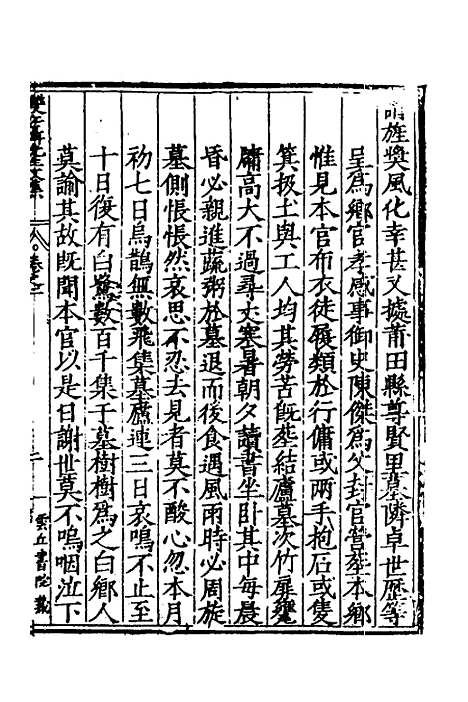 請旌奬風化幸甚又據莆田縣尊賢里墓隣卓世歷等
呈爲鄉官孝感事御史陳傑爲父封官營葬本鄉
惟見本官布衣徒履類於行傭或兩手抱石或隻
箕扱土與工人均其勞苦旣葬結廬墓次竹扉甕
牖高大不過尋丈寒暑朝夕讀書坐卧其中每晨
昏必親進蔬粥於墓退而後食遇風雨時必周旋
墓側悵悵然哀思不忍去見者莫不酸心忽本月
初七日烏鵲無數飛集墓廬連三日哀鳴不止至
十日復有白鷺數百千集于墓樹樹爲之白鄉人
莫諭其故旣聞本官以是日謝世莫不嗚咽泣下
雲丘書院藏